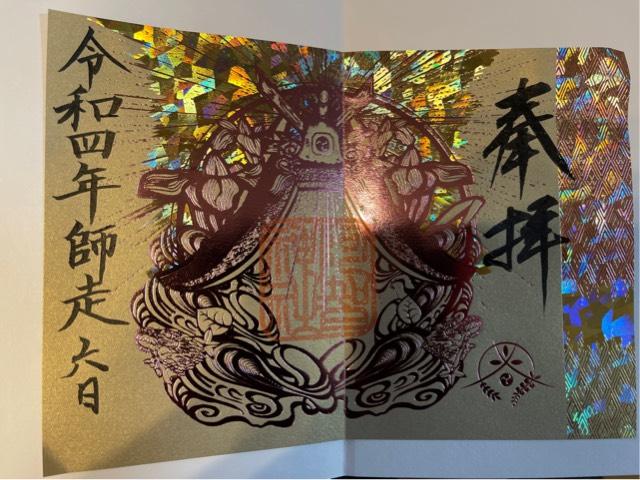 奉拝
令和四年師走六日